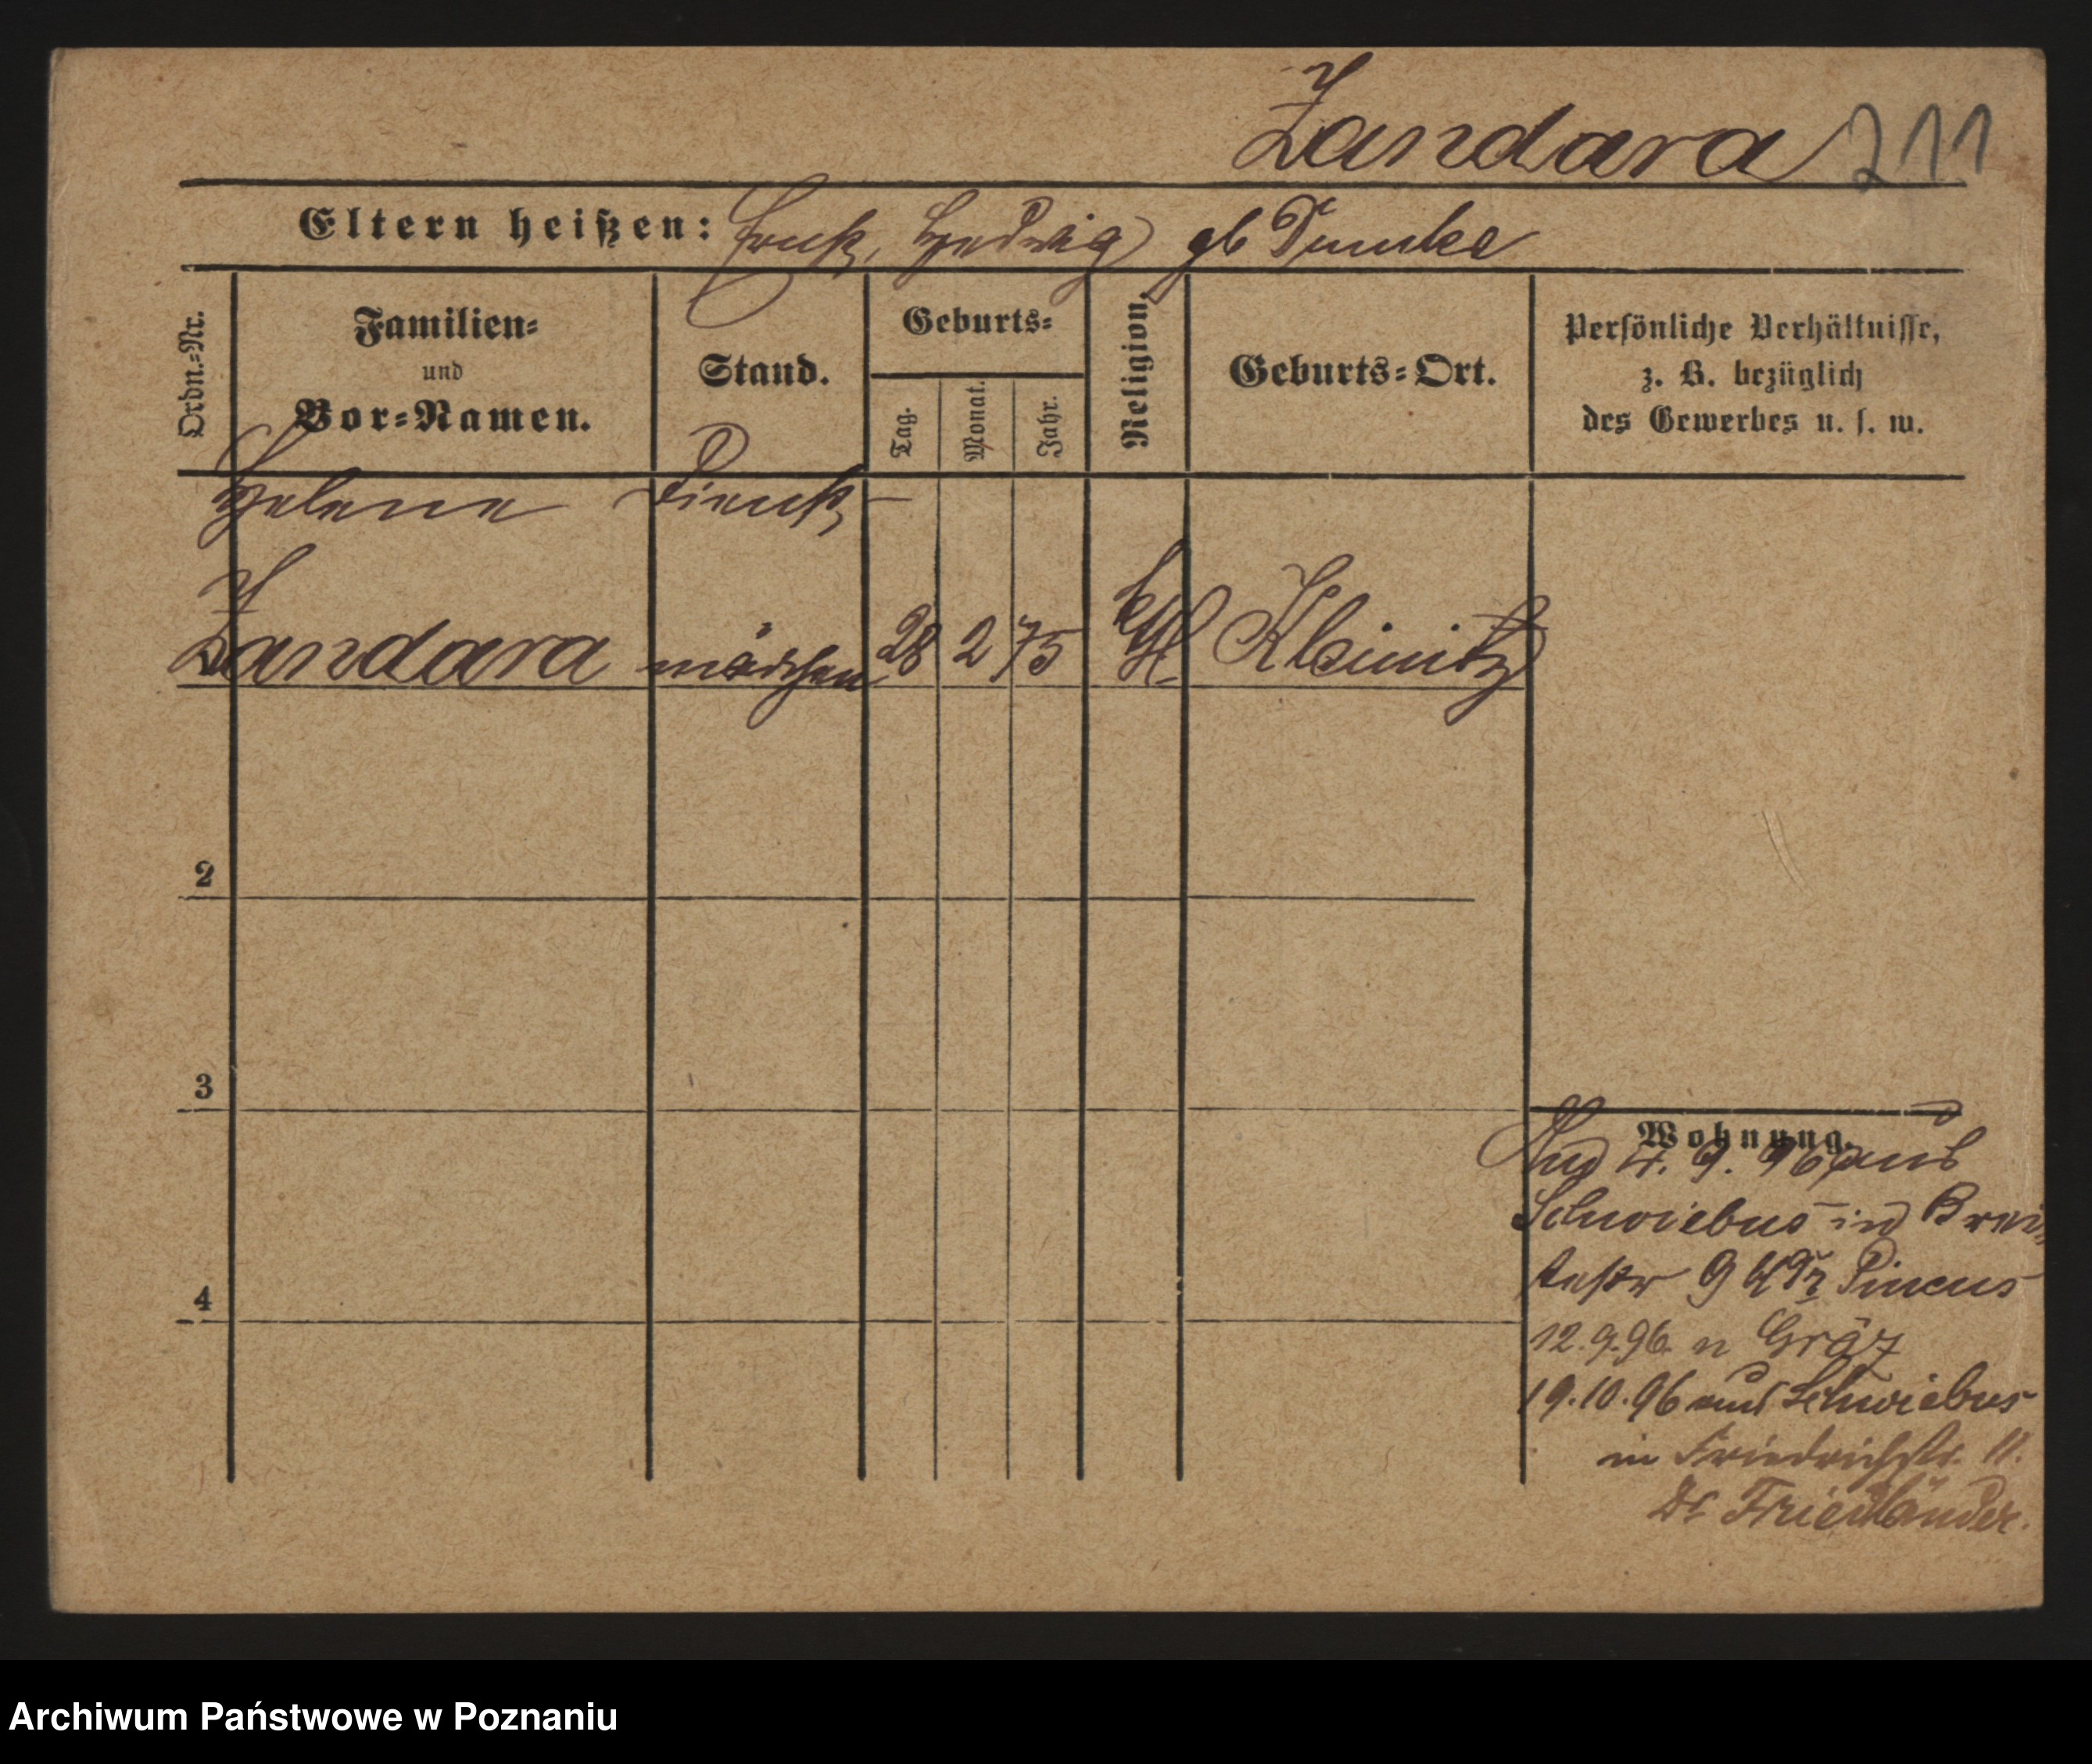 Zandara 211
Eltern heißen: Ernst, Hedwig gb Dumke
Ordn.=Nr.
Familien=
und
Vor=Namen.
Stand.
Geburts=
Tag.
Monat.
Jahr.
Religion.
Geburts=Ort.
Persönliche Verhältnisse,
z. B. bezüglich
des Gewerbes u. s. w.
Helene Dienst
Zandara mädchen 28 2 75 kth Kleinitz
2
3
4
Wohnung.
4. 9. 96 aus
Schwiebus in Brei
testr 9 Pincus
12.9.96. n Grätz
19.10.96 aus Schwiebus
in Friedrichstr. 11.
Dr Friedländer.
Archiwum Państwowe w Poznaniu